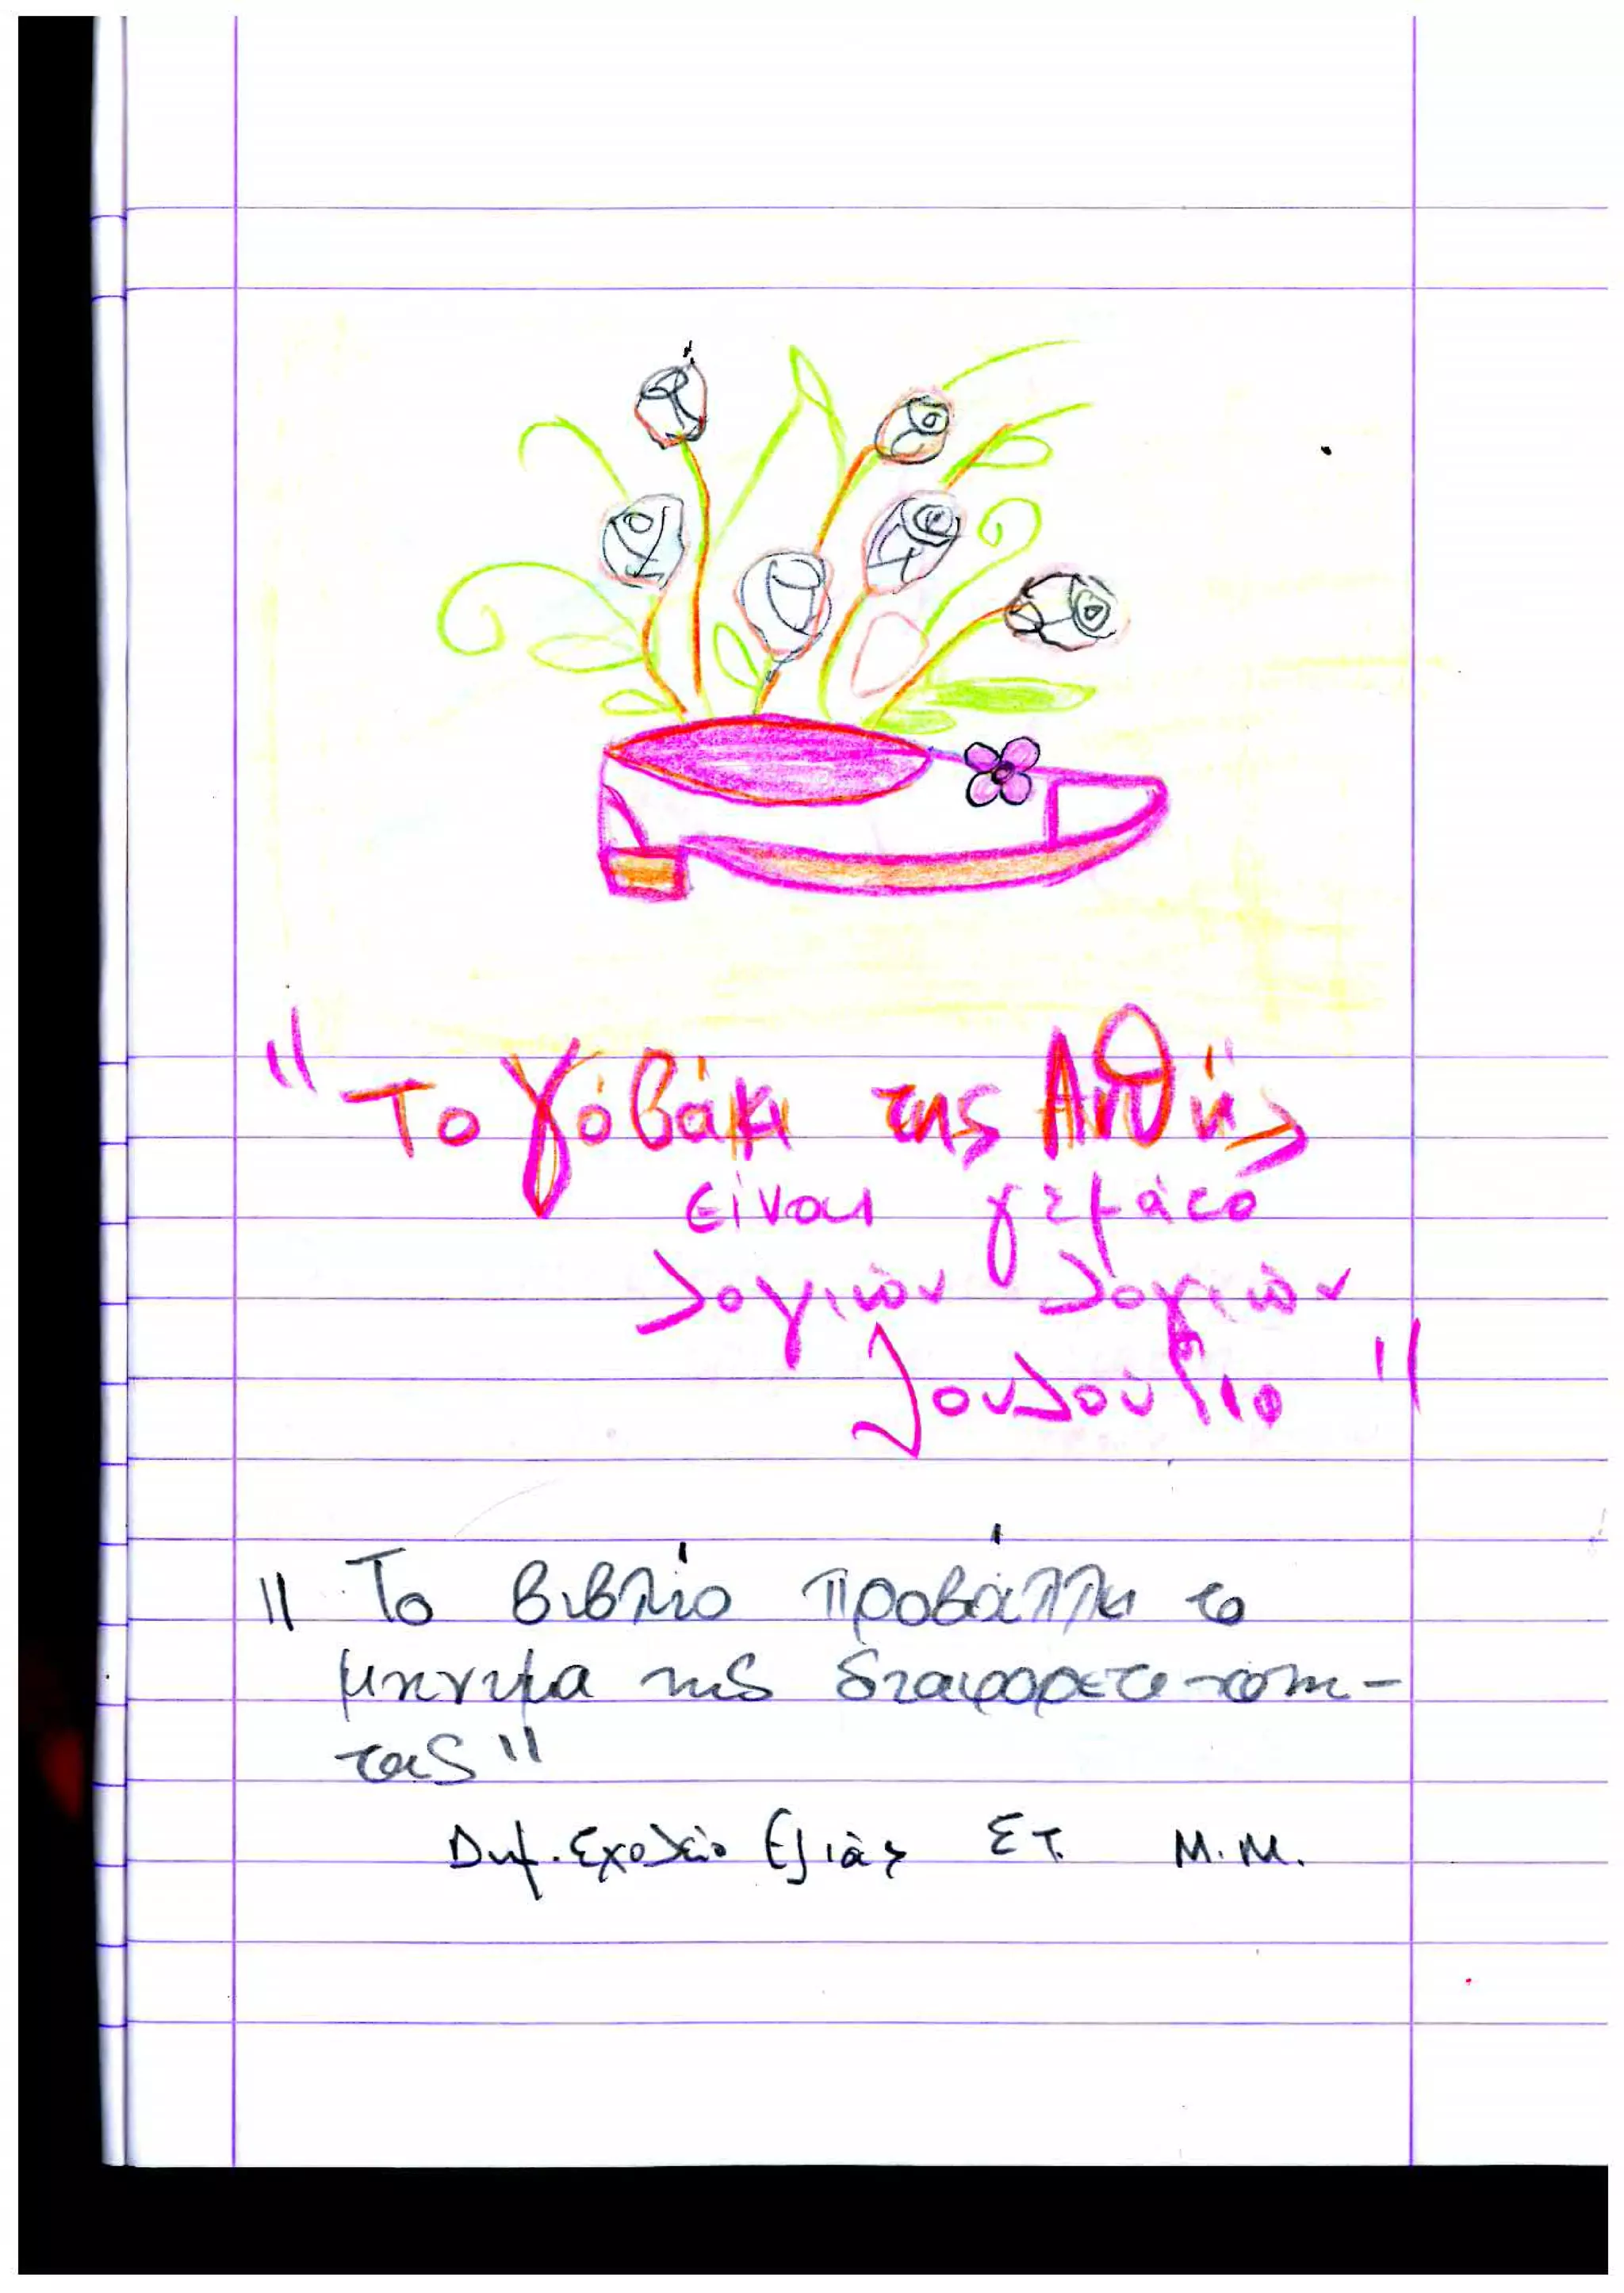 "Το γόβάκι της Ανθής
είναι γεμάτο
λογιών λογιών
λουλούδια"
"Το βιβλίο προβάλλει το
μήνυμα της διαφορετικότη-
τας"
Δημ. Σχολείο Ελιάς ΣΤ. Μ.Μ.